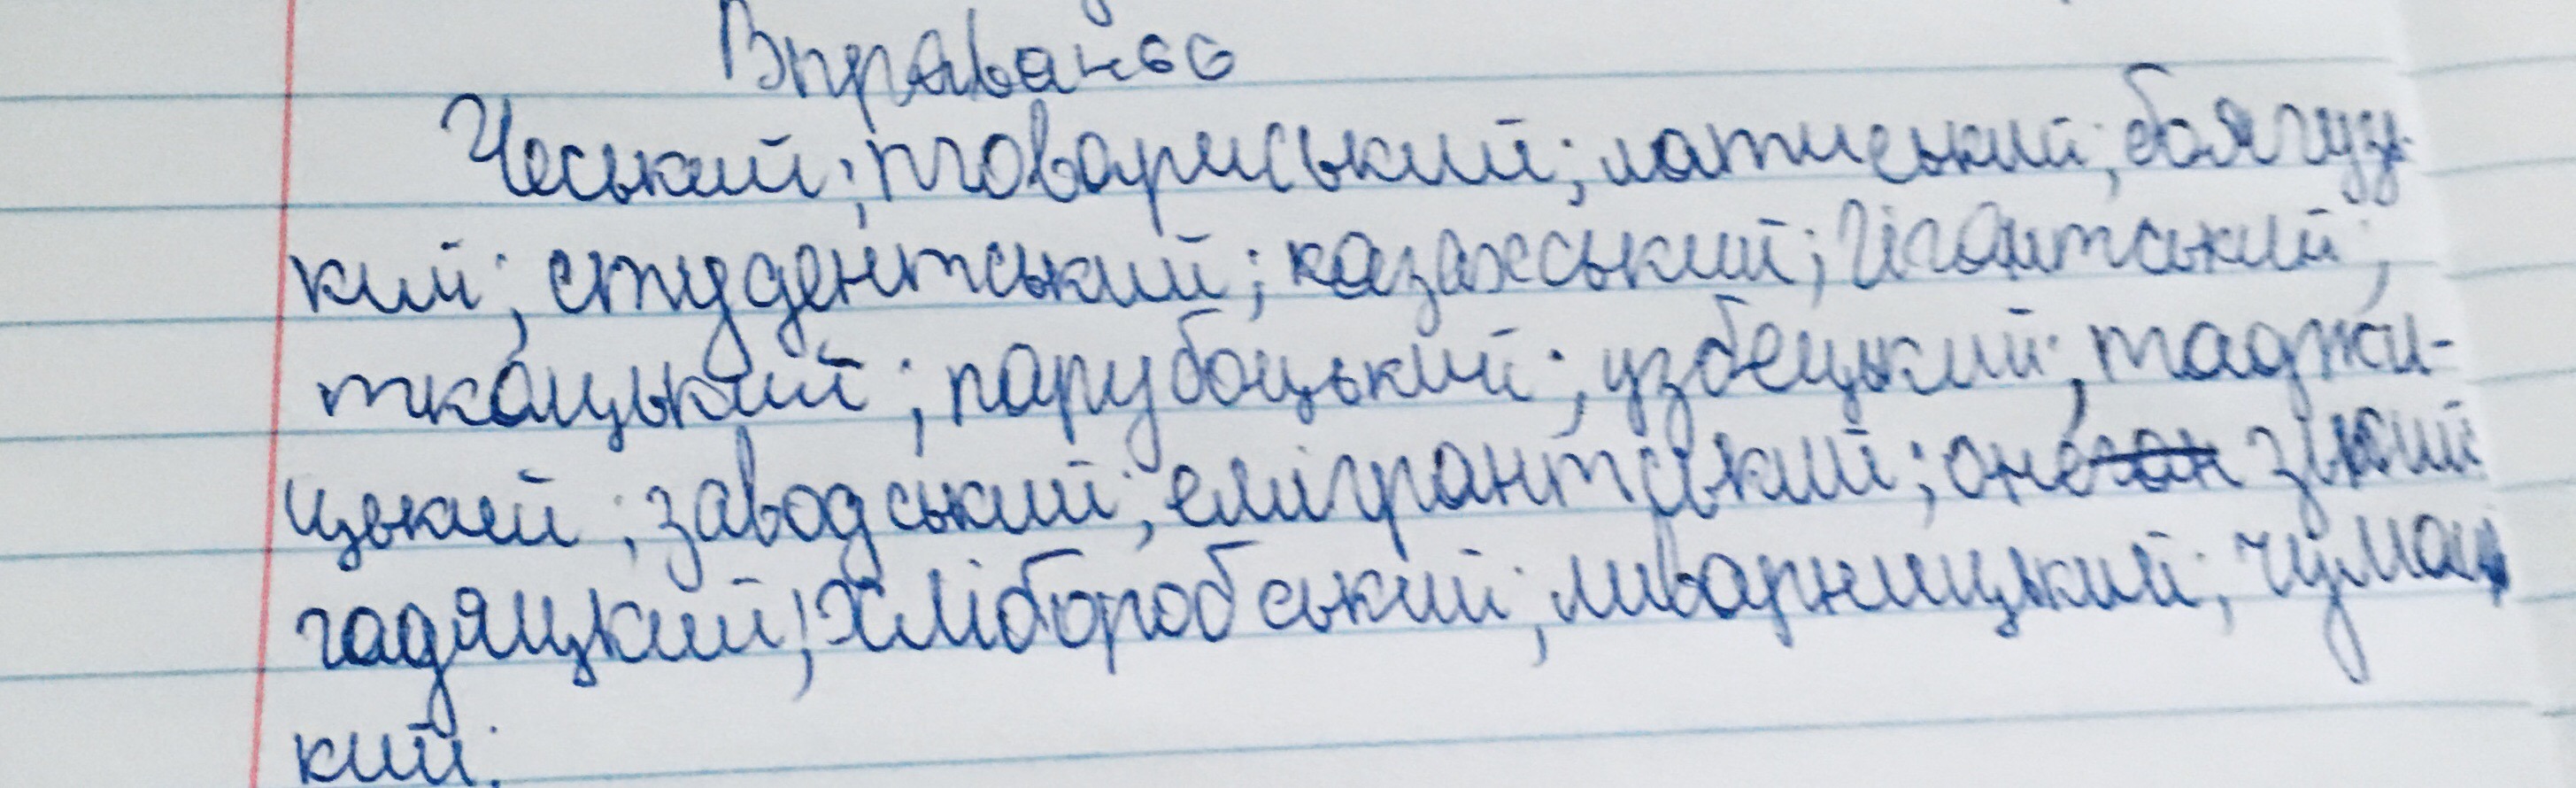 Вправа №66
Чеський; товариський; латиський; боягузь-
кий; студентський; казахський; гігантський;
ткацький; парубоцький; узбецький; таджи-
цький; заводський; емігрантський; онезький
гадяцький; хліборобський; ливарницький; чумаць
кий.